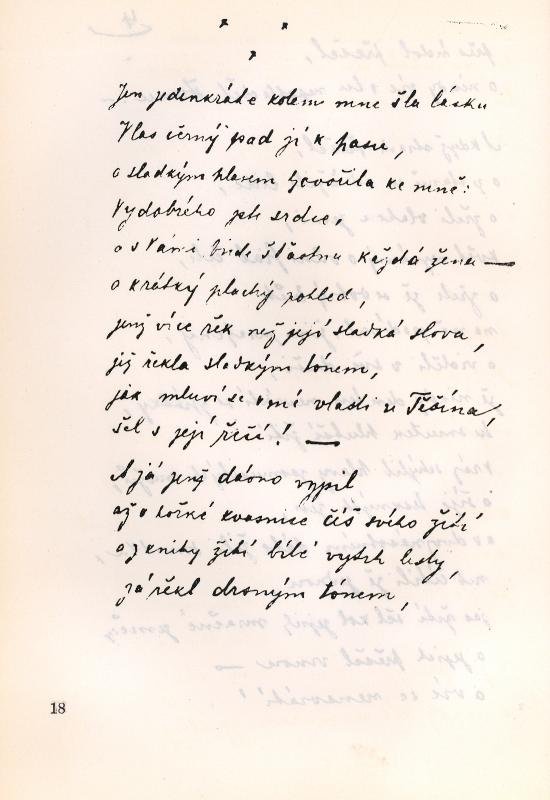 * *
*
Jen jedenkráte kolem mne šla láska
Vlas černý pad jí k pasu,
a sladkým hlasem hovořila ke mně:
Vy dobrého jste srdce,
a s Vámi bude šťastna každá žena —
a krátký plachý pohled,
jenž více řek než její sladká slova,
jež řekla sladkým tónem,
jak mluví se v mé vlasti u Těšína,
šel s její řečí! —
A já jenž dávno vypil
až k hořké kvasnice číš svého žití
a z knihy žití bílé vytrh listy,
já řekl drsným tónem,
18